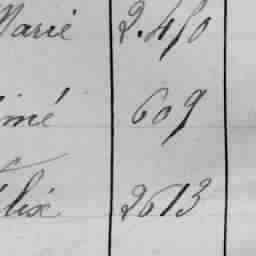 Marie 2.450
imé 609
élix 2613